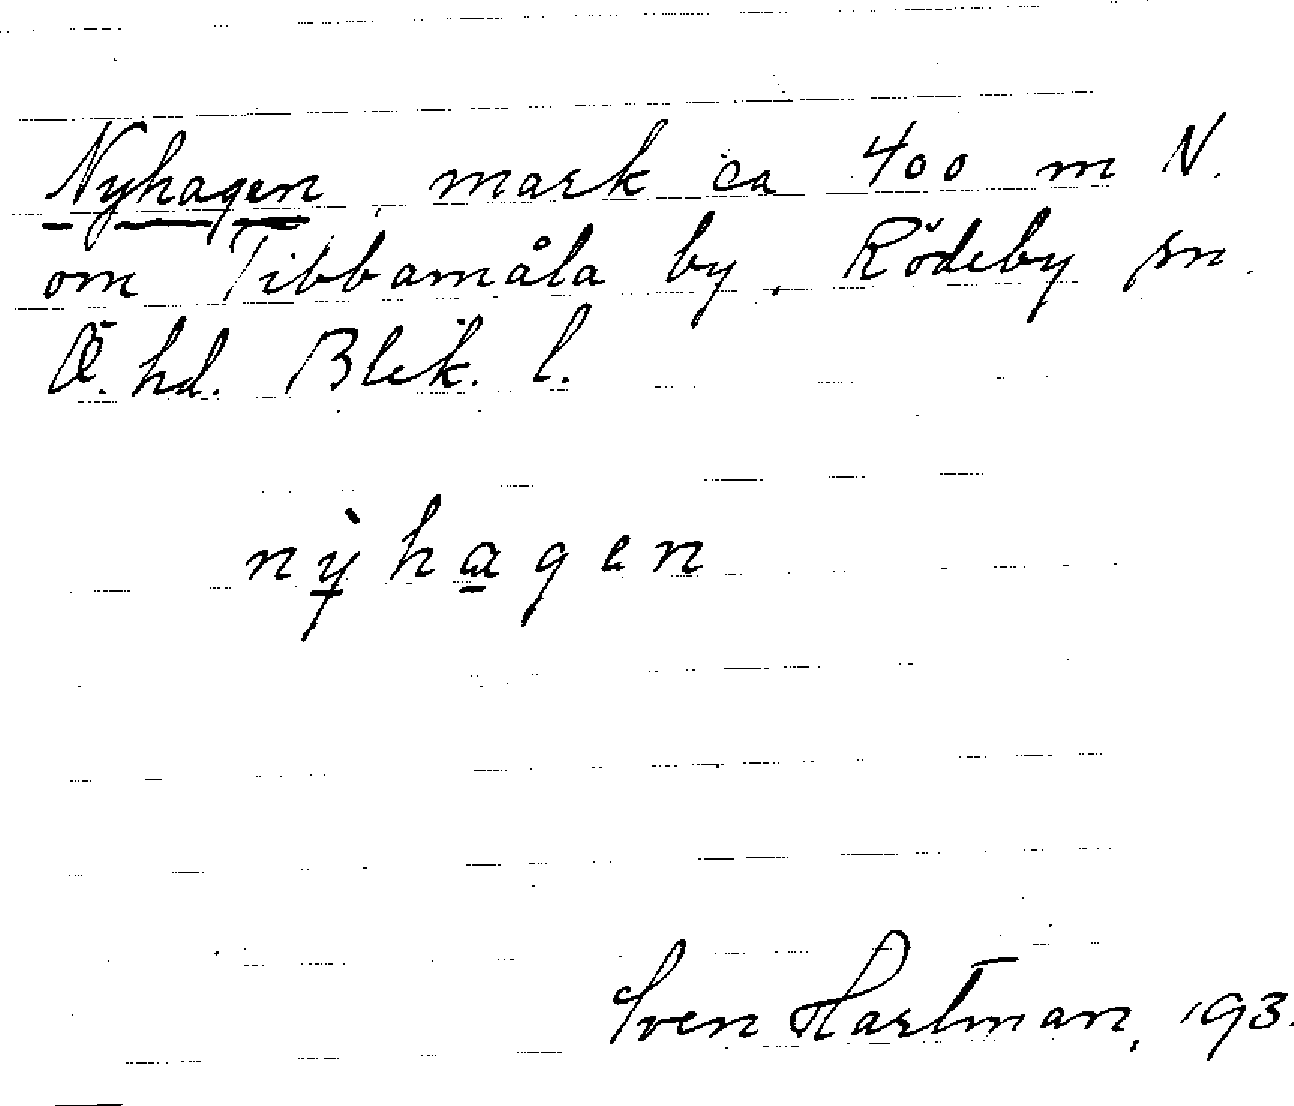 Nyhagen, mark ca 400 m N.
om Tibbamåla by, Rödeby sn.
Ö. hd. Blek. l.
nỳhagen
Sven Hartman, 193.